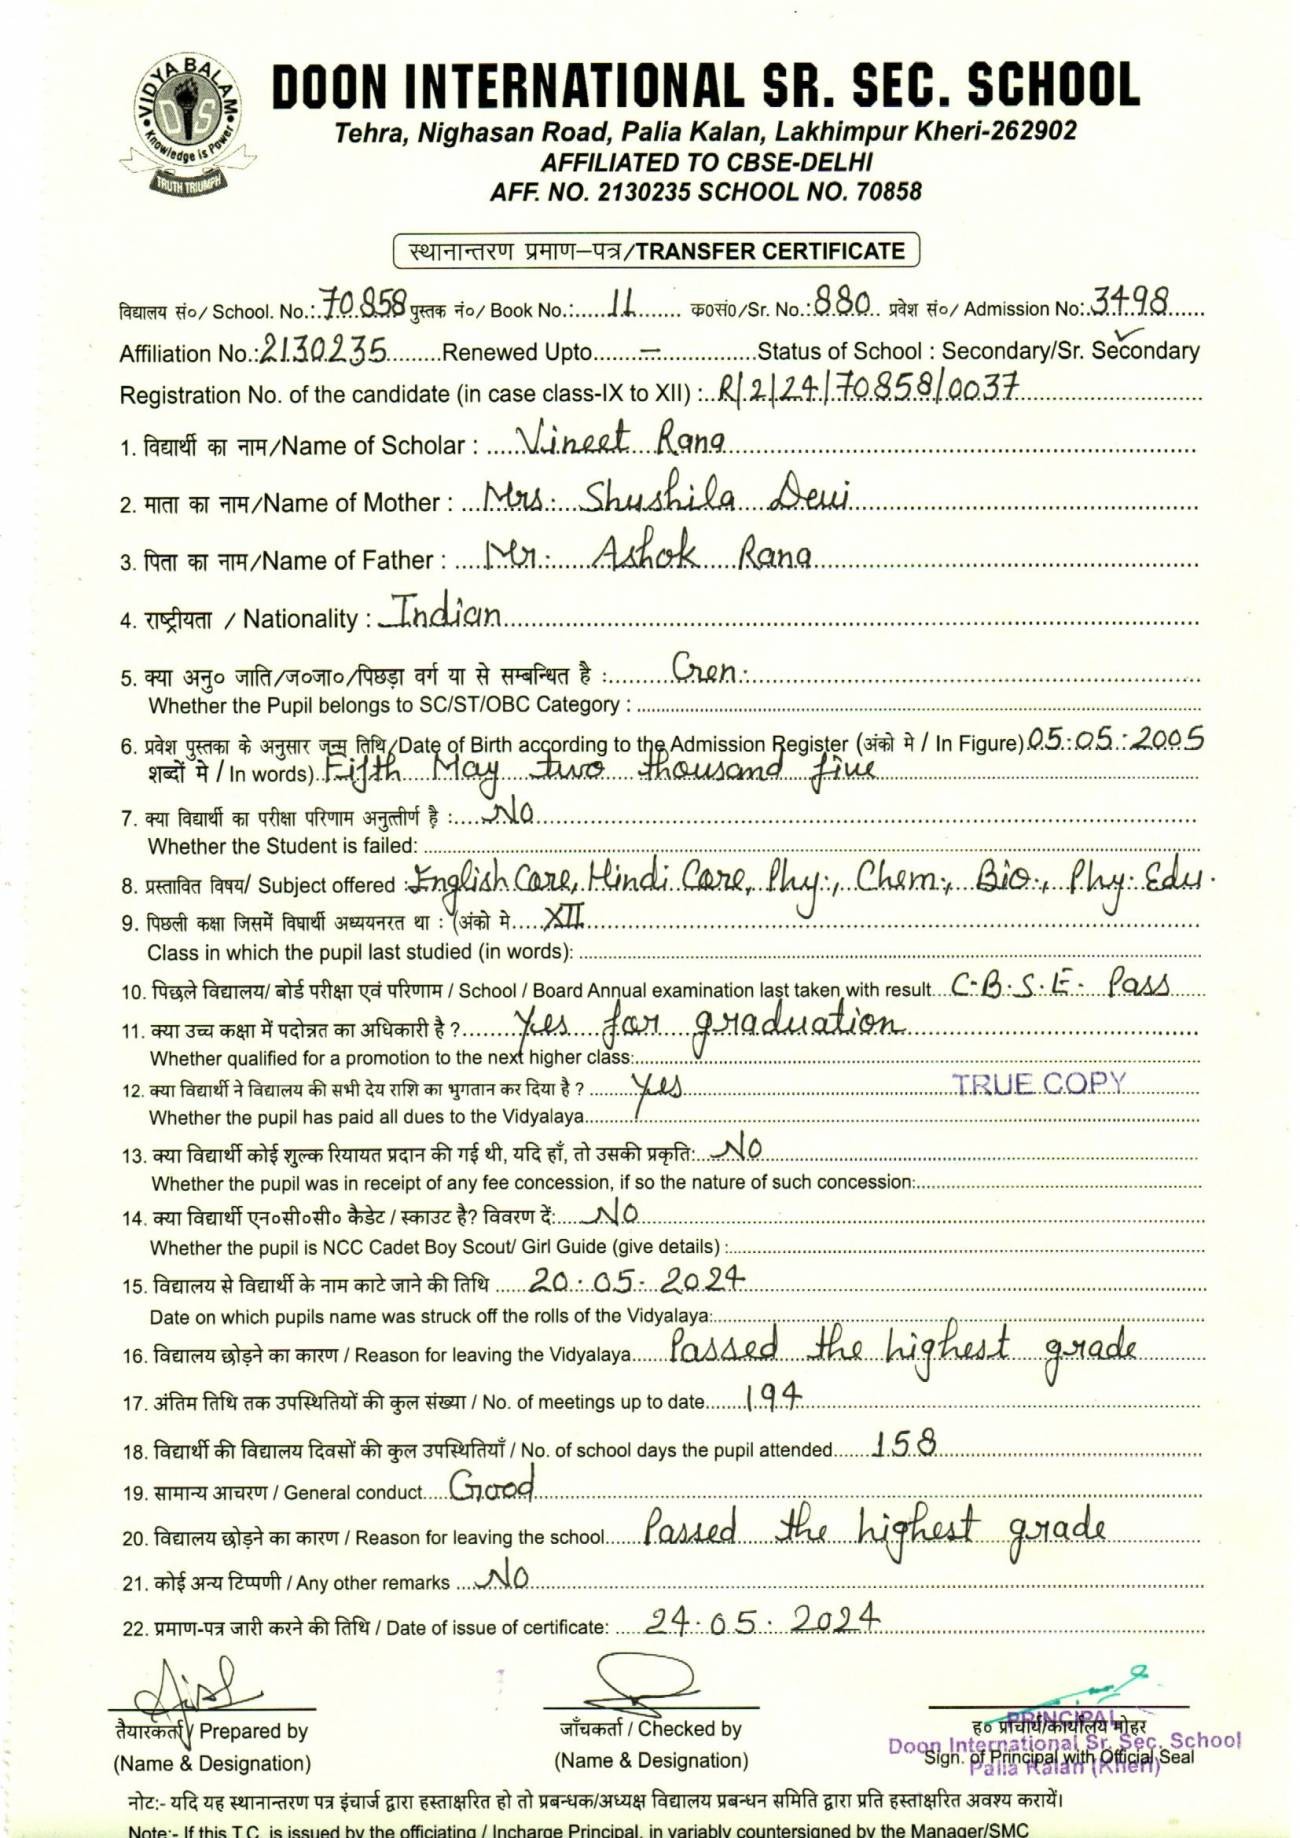 VIDYA BALAM
DIS
Knowledge is Power
TRUTH TRIUMPH
DOON INTERNATIONAL SR. SEC. SCHOOL
Tehra, Nighasan Road, Palia Kalan, Lakhimpur Kheri-262902
AFFILIATED TO CBSE-DELHI
AFF. NO. 2130235 SCHOOL NO. 70858
स्थानान्तरण प्रमाण–पत्र/TRANSFER CERTIFICATE
विद्यालय सं०/ School. No.: 70858 पुस्तक नं०/ Book No.: 11 क०सं०/Sr. No.: 880 प्रवेश सं०/ Admission No: 3498
Affiliation No.: 2130235 Renewed Upto — Status of School : Secondary/Sr. Secondary
Registration No. of the candidate (in case class-IX to XII) : R/2/24/70858/0037
1. विद्यार्थी का नाम/Name of Scholar : Vineet Rana
2. माता का नाम/Name of Mother : Mrs. Shushila Devi
3. पिता का नाम/Name of Father : Mr. Ashok Rana
4. राष्ट्रीयता / Nationality : Indian
5. क्या अनु० जाति/ज०जा०/पिछड़ा वर्ग या से सम्बन्धित है : Gen.
Whether the Pupil belongs to SC/ST/OBC Category :
6. प्रवेश पुस्तका के अनुसार जन्म तिथि/Date of Birth according to the Admission Register (अंको मे / In Figure) 05.05.2005
शब्दों मे / In words) Fifth May two thousand five
7. क्या विद्यार्थी का परीक्षा परिणाम अनुत्तीर्ण है : No
Whether the Student is failed:
8. प्रस्तावित विषय/ Subject offered : English Core, Hindi Core, Phy., Chem., Bio., Phy. Edu.
9. पिछली कक्षा जिसमें विघार्थी अध्ययनरत था : (अंको मे XII
Class in which the pupil last studied (in words):
10. पिछले विद्यालय/ बोर्ड परीक्षा एवं परिणाम / School / Board Annual examination last taken with result C.B.S.E. Pass
11. क्या उच्च कक्षा में पदोन्नत का अधिकारी है ? Yes for graduation
Whether qualified for a promotion to the next higher class:
12. क्या विद्यार्थी ने विद्यालय की सभी देय राशि का भुगतान कर दिया है ? Yes TRUE COPY
Whether the pupil has paid all dues to the Vidyalaya
13. क्या विद्यार्थी कोई शुल्क रियायत प्रदान की गई थी, यदि हाँ, तो उसकी प्रकृति: No
Whether the pupil was in receipt of any fee concession, if so the nature of such concession:
14. क्या विद्यार्थी एन०सी०सी० कैडेट / स्काउट है? विवरण दें: No
Whether the pupil is NCC Cadet Boy Scout/ Girl Guide (give details) :
15. विद्यालय से विद्यार्थी के नाम काटे जाने की तिथि 20.05.2024
Date on which pupils name was struck off the rolls of the Vidyalaya:
16. विद्यालय छोड़ने का कारण / Reason for leaving the Vidyalaya Passed the highest grade
17. अंतिम तिथि तक उपस्थितियों की कुल संख्या / No. of meetings up to date 194
18. विद्यार्थी की विद्यालय दिवसों की कुल उपस्थितियाँ / No. of school days the pupil attended 158
19. सामान्य आचरण / General conduct Good
20. विद्यालय छोड़ने का कारण / Reason for leaving the school Passed the highest grade
21. कोई अन्य टिप्पणी / Any other remarks No
22. प्रमाण-पत्र जारी करने की तिथि / Date of issue of certificate: 24.05.2024
तैयारकर्ता / Prepared by जाँचकर्ता / Checked by ह० प्राचार्य/कार्यालय मोहर
PRINCIPAL
Doon International Sr. Sec. School
Palia Kalan (Kheri)
(Name & Designation) (Name & Designation) Sign. of Principal with Official Seal
नोट:- यदि यह स्थानान्तरण पत्र इंचार्ज द्वारा हस्ताक्षरित हो तो प्रबन्धक/अध्यक्ष विद्यालय प्रबन्धन समिति द्वारा प्रति हस्ताक्षरित अवश्य करायें।
Note:- If this T.C. is issued by the officiating / Incharge Principal, in variably countersigned by the Manager/SMC